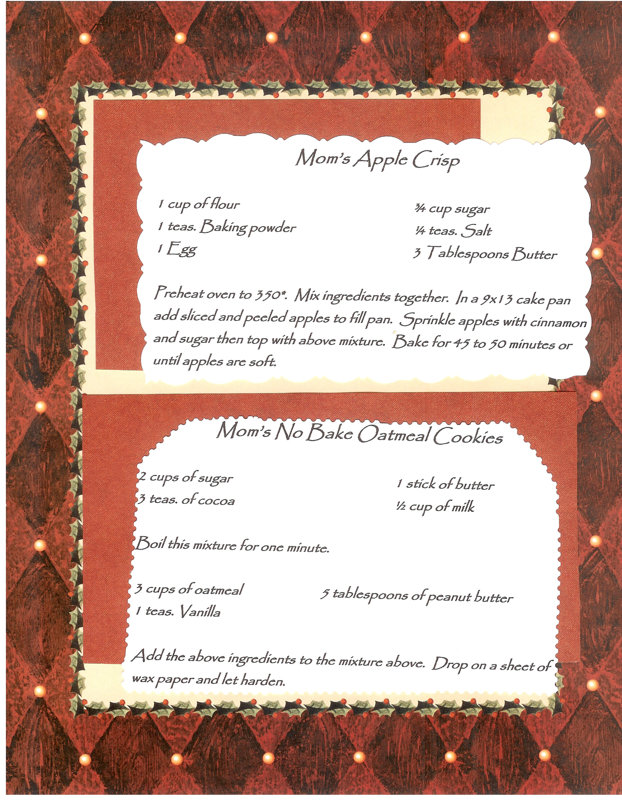 Mom's Apple Crisp
1 cup of flour ¾ cup sugar
1 teas. Baking powder ¼ teas. Salt
1 Egg 3 Tablespoons Butter
Preheat oven to 350°. Mix ingredients together. In a 9x13 cake pan
add sliced and peeled apples to fill pan. Sprinkle apples with cinnamon
and sugar then top with above mixture. Bake for 45 to 50 minutes or
until apples are soft.
Mom's No Bake Oatmeal Cookies
2 cups of sugar 1 stick of butter
3 teas. of cocoa ½ cup of milk
Boil this mixture for one minute.
3 cups of oatmeal 5 tablespoons of peanut butter
1 teas. Vanilla
Add the above ingredients to the mixture above. Drop on a sheet of
wax paper and let harden.